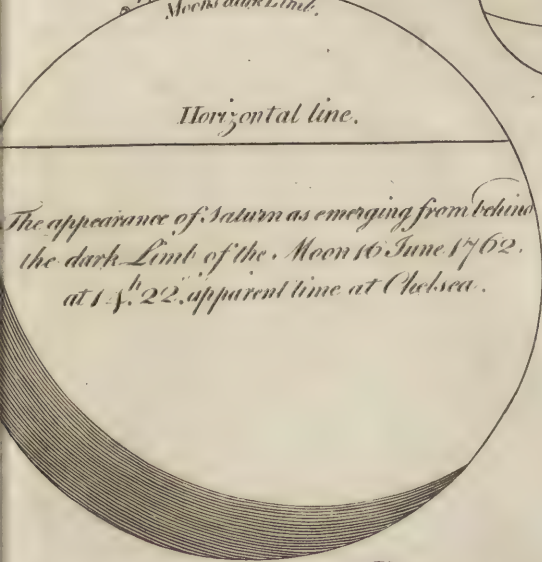 Moons dark Limb.
Horizontal line.
The appearance of Saturn as emerging from behind
the dark Limb of the Moon 16 June 1762.
at 14.h 22. apparent time at Chelsea.